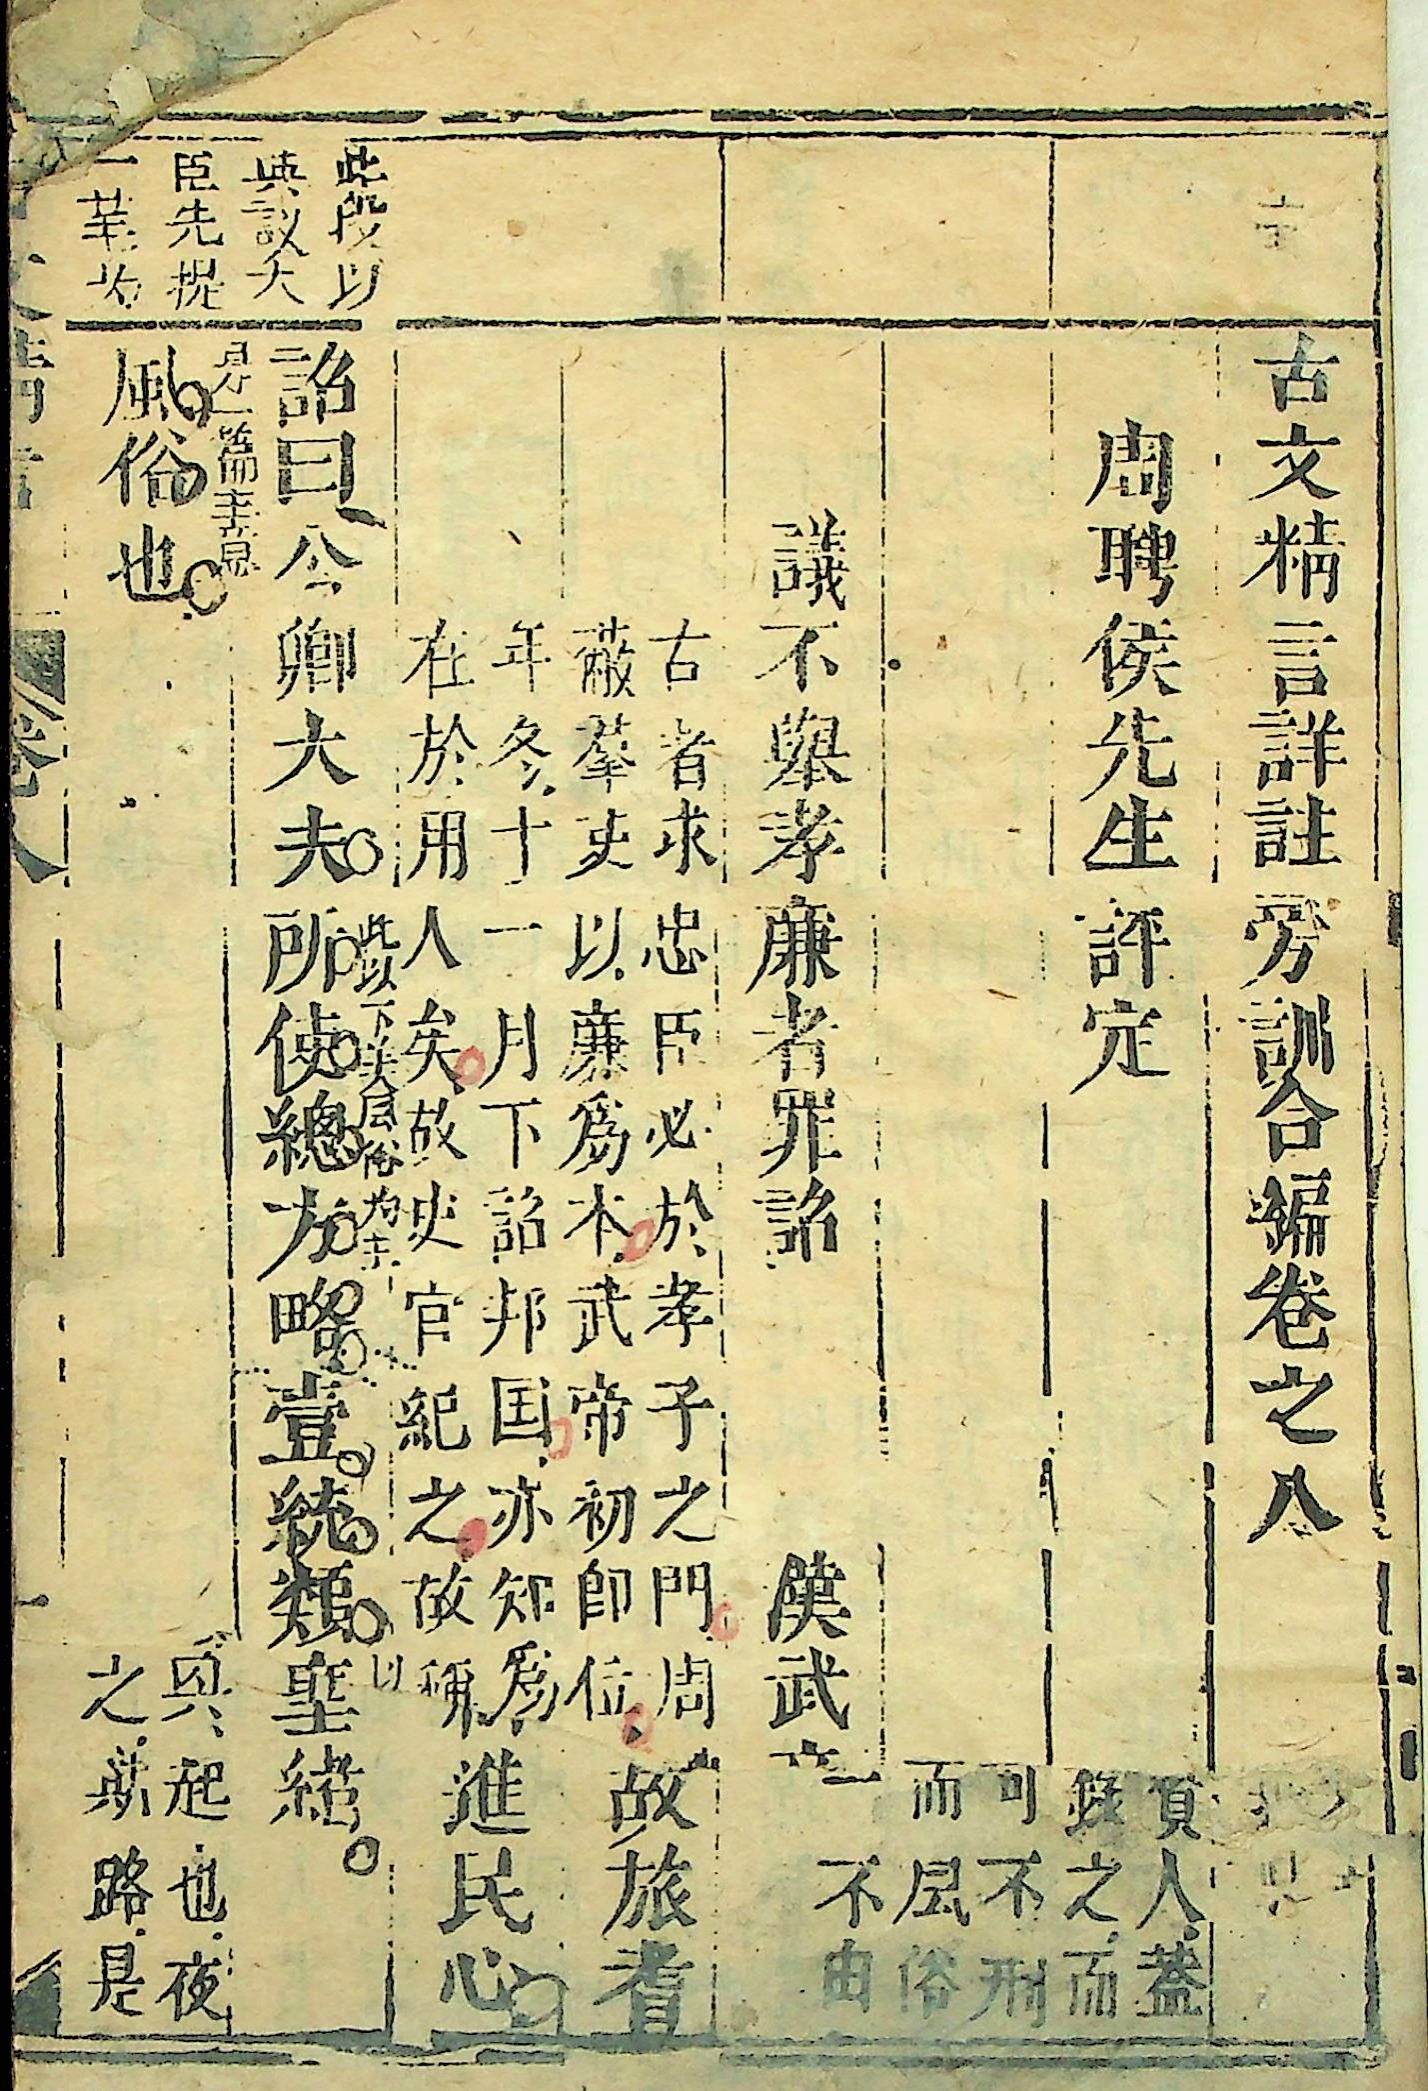 古文精言詳註旁訓合編卷之八
周聘侯先生評定
議不舉孝廉者罪詔
漢武
古者求忠臣必於孝子之門周
蔽羣吏以廉爲本武帝初即位
年冬十一月下詔邦国亦知爲
在於用人矣故史官紀之故稱
詔曰公卿大夫所使總方略壹統類
此以下美風俗爲主
聖緒
風俗也
是一篇主意
此段以
典議大
臣先提
一筆
賢人蓋
錄之而
可不刑
而風俗
不由
故旅耆
進民心
興起也夜
之斯路是